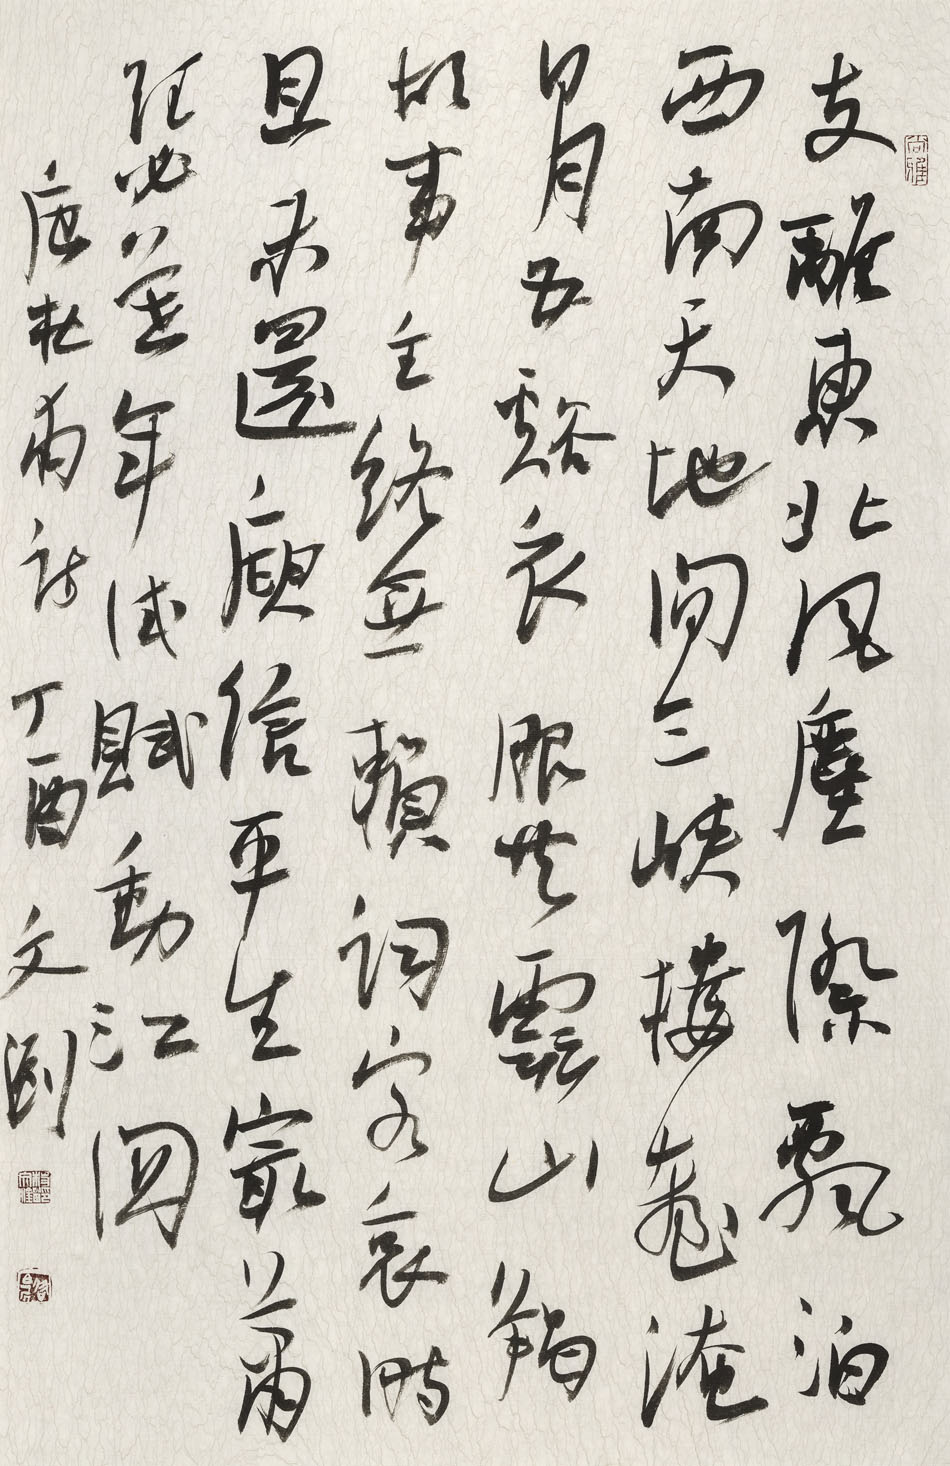 尚雅
支離東北風塵際飄泊
西南天地間三峽樓臺淹
日月五谿衣服共雲山羯
胡事主終無賴詞客哀時
且未還庾信平生最蕭
瑟暮年詩賦動江關
唐杜甫詩丁酉文